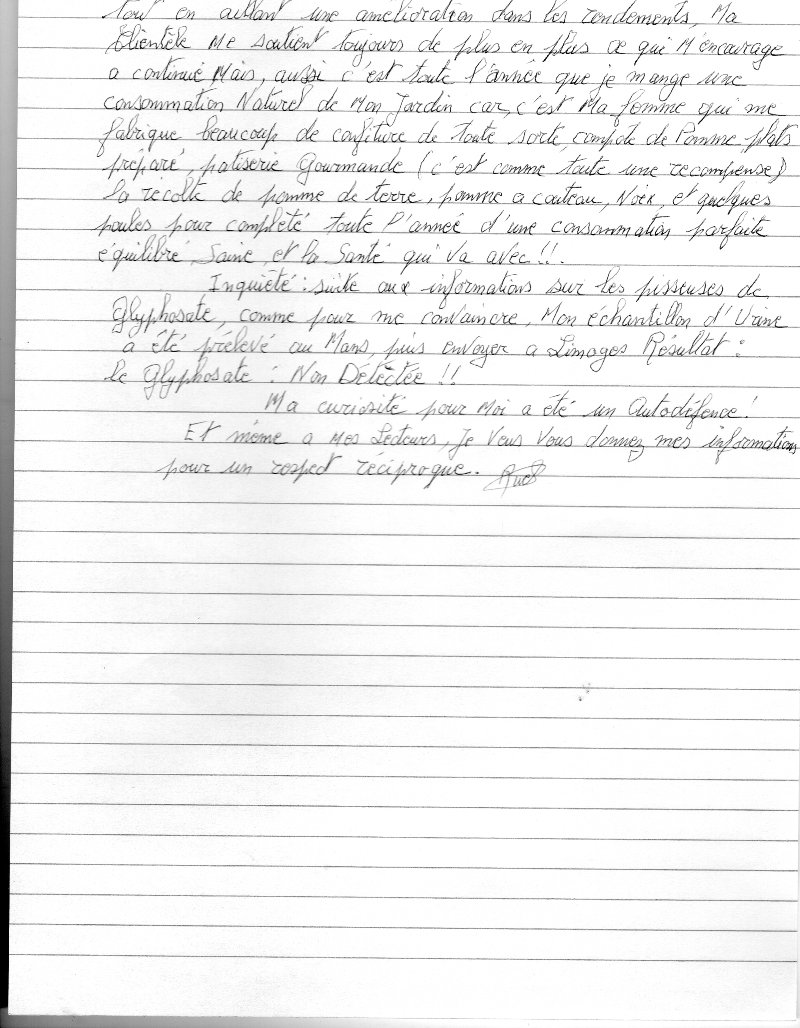 tout en aillant une amélioration dans les rendements, Ma
Clientèle Me soutient toujours de plus en plus ce qui M'encourage
a continué Mais, aussi c'est toute l'année que je mange une
consommation Naturel de Mon Jardin car, c'est Ma femme qui me
fabrique beaucoup de confiture de toute sorte, compote de Pomme, plats
préparé, patiserie Gourmande (c'est comme toute une recompense)
la recolte de pomme de terre, pomme a couteau, Noix, et quelques
poules pour complété toute l'année d'une consommation parfaite
équilibré, Saine, et la Santé qui va avec !!.
Inquiété : suite aux informations sur les pisseuses de
Glyphosate, comme pour me convaincre, Mon échantillon d'Urine
a été prélevé au Mans, puis envoyer a Limoges Résultat :
le Glyphosate : Non Détectée !!
Ma curiosité pour Moi a été un Autodéfence !
Et même a Mes Lecteurs, Je Veus Vous donnez mes informations
pour un respect réciproque.